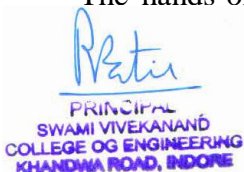 The hands of
RPatil
PRINCIPAL
SWAMI VIVEKANAND
COLLEGE OG ENGINEERING
KHANDWA ROAD, INDORE